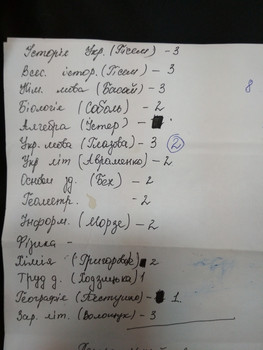 Історія Укр. (Гісем) - 3
Всес. істор. (Гісем) - 3
Нім. мова (Басай) - 3
8
Біологія (Соболь) - 2
Алгебра (Істер) -
Укр. мова (Глазова) - 3 (2)
Укр літ (Авраменко) - 2
Основи зд. (Бех) - 2
Геометр. - 2
Інформ. (Морзе) - 2
Фізика -
Хімія (Григорович) 2
Труд. д. (Ходзицька) 1
Географія (Пестушко) - 1.
Зар. літ. (Волощук) - 3